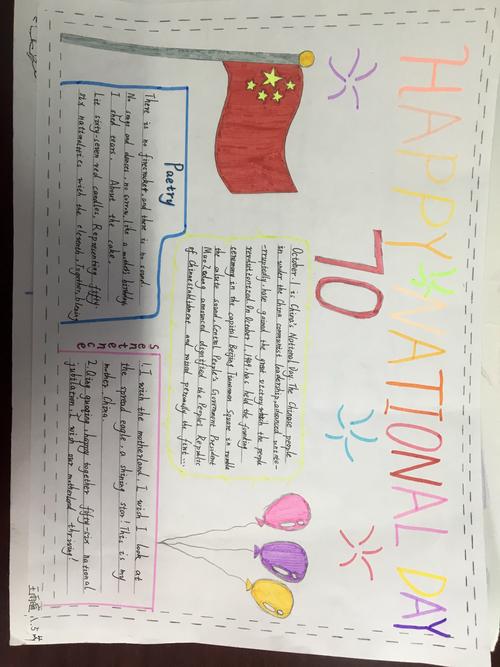 HAPPY NATIONAL DAY
70
October 1 is China's National Day. The Chinese people
in under the China communist leadership, advanced uninte-
-rruptedly, have gained the great victory which the people
revolutionized. In October 1, 1949, has held the founding
ceremony in the capital Beijing Tiananmen Square, in rumble
the salute sound, Central People's Government President
Mao Zedong announced dignified the People's Republic
of China establishment and raised personally the first ...
Poetry
There is no firecracker, and there is no sound.
No songs and dances, no like a mother's birthday.
I shed tears. About the cake.
Lit sixty-seven red candles, Representing fifty-
six nationalities with the eleventh. Together, blessing
Sentence
1. I wish the motherland, I wish I look at
the spread eagle, a shining star! This is my
mother China.
2. Qing guoqing happy together fifty-six national
jubilation, I wish our motherland thriving!